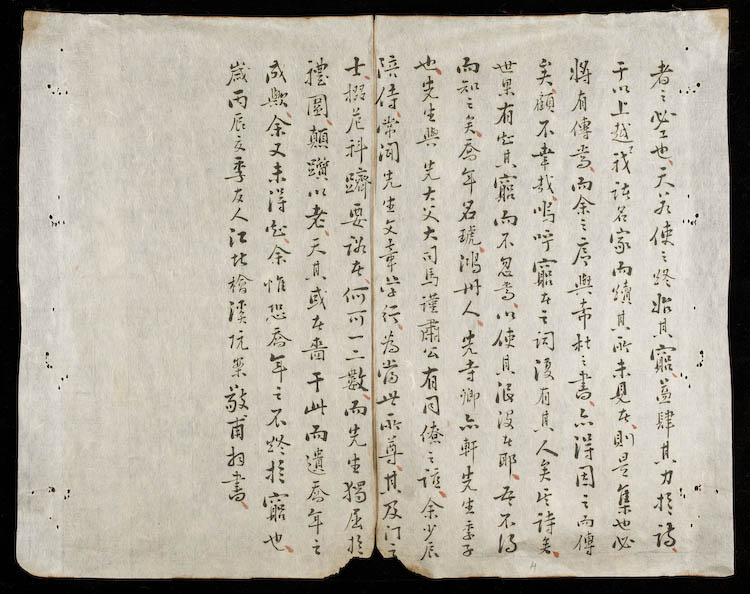 者之必工也天若使之終始其窮益肆其力於詩
于以上越我諸名家而續其所未見在則是集也必
將有傳焉而余之序與希杜之書亦得因之而傳
矣顧不幸哉嗚呼窮在之詞復有其人矣詩
世果有知其窮而不忽焉以使其泯沒在耶吾不得
而知之矣喬年名琥鴻州人先寺卿亦軒先生季子
也先生與 先大父大司馬謹肅公有同僚之誼余少辰
陪侍常聞先生文章學行為當世所尊其及門之
士掇科躋要路在何可一二數而先生獨屈於
禮圍顛躓以老天其或在嗇于此而遺喬年之
成歟余又未得知余惟恐喬年之不終於窮也
歲丙辰季友人江北檜溪阮案敬甫拜書